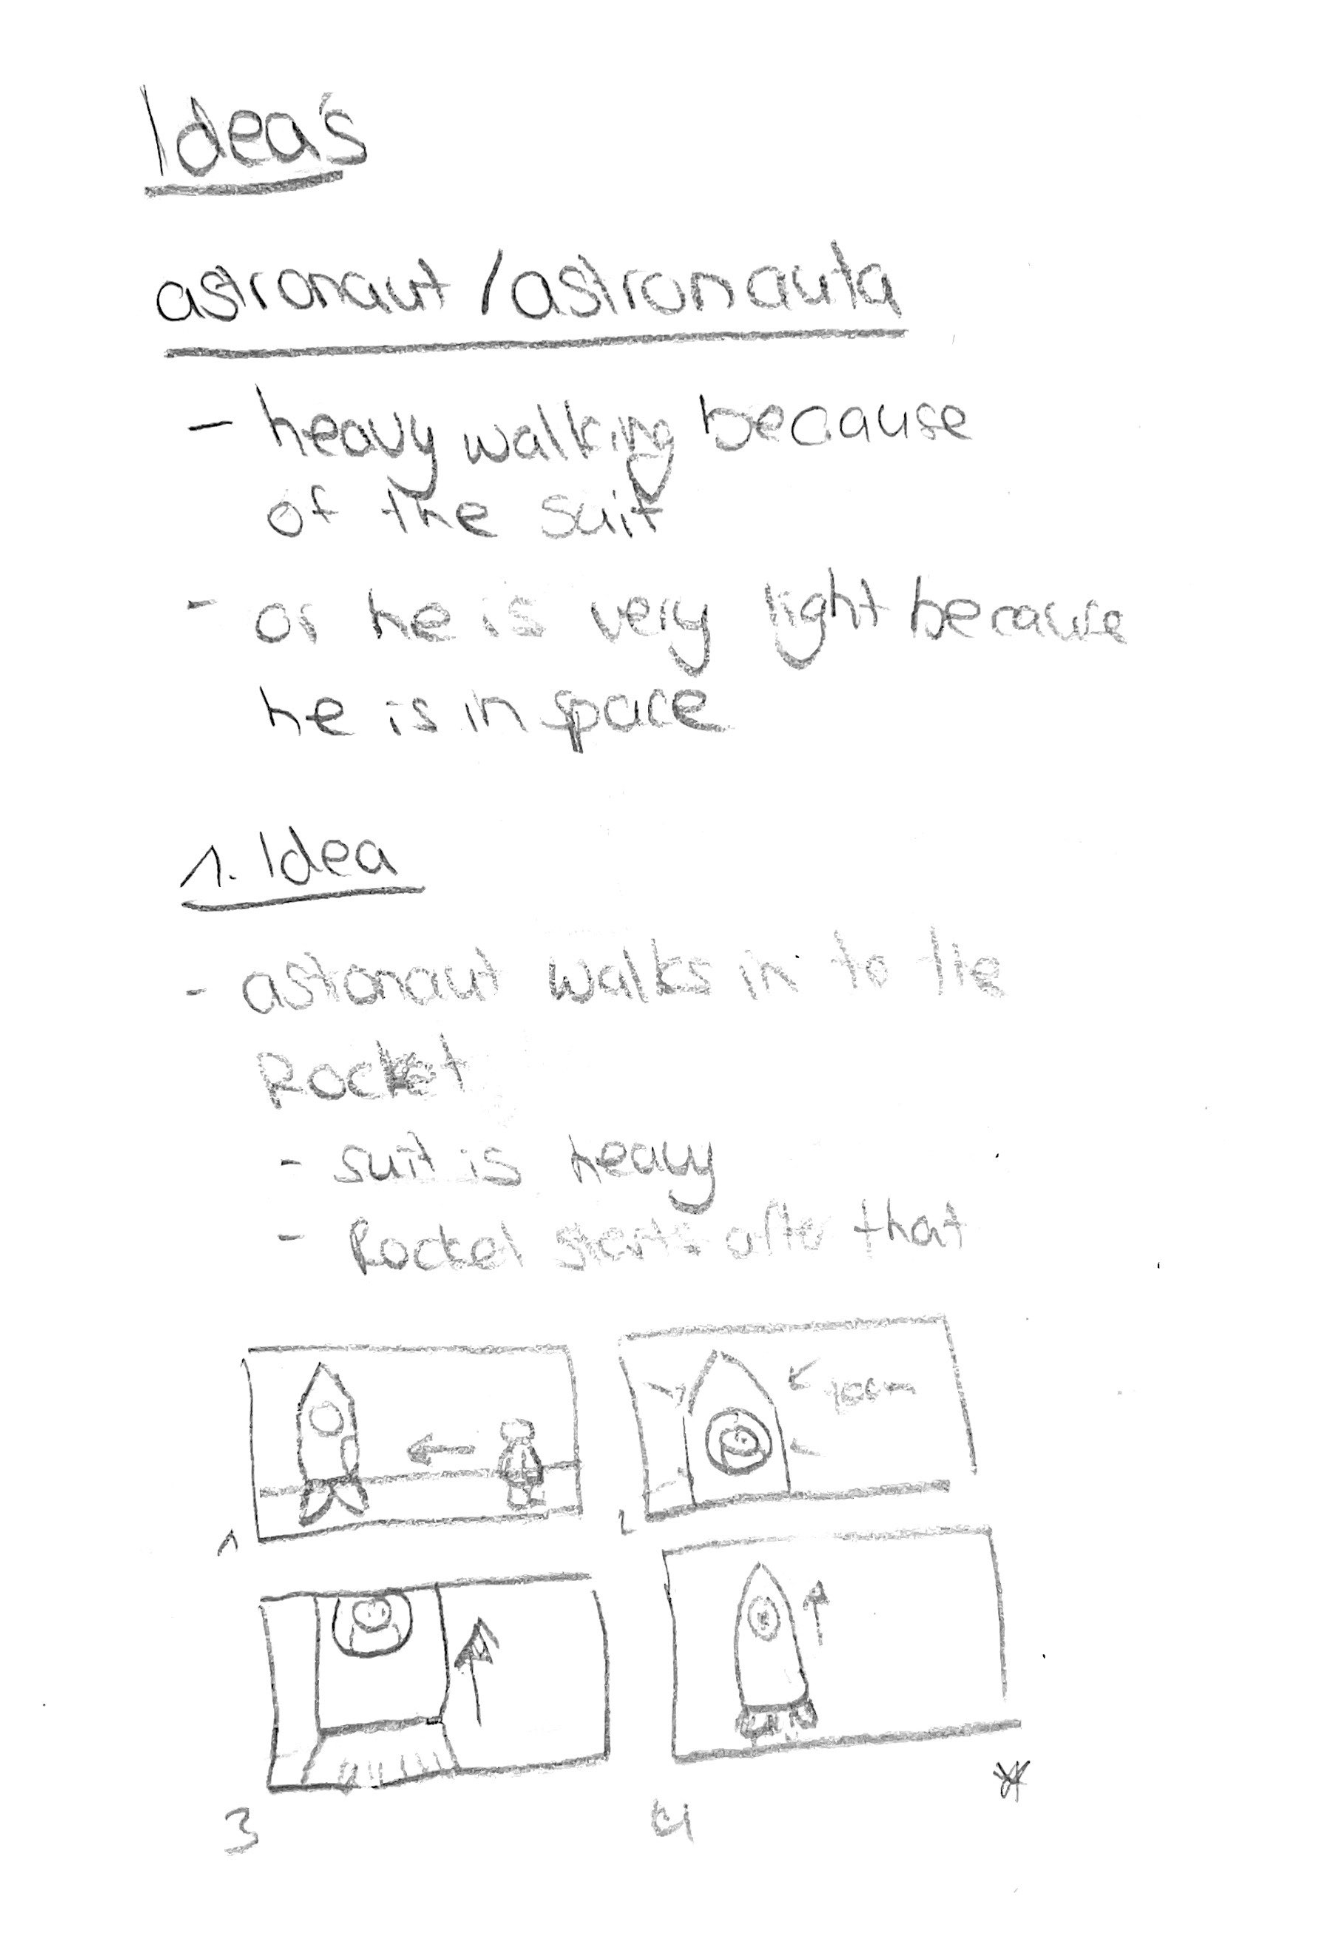 Idea's
astronaut / astronauta
- heavy walking because
of the suit
- or he is very light because
he is in space
1. Idea
- astronaut walks in to the
Rocket
- suit is heavy
- Rocket starts after that
zoom
1
2
3
4